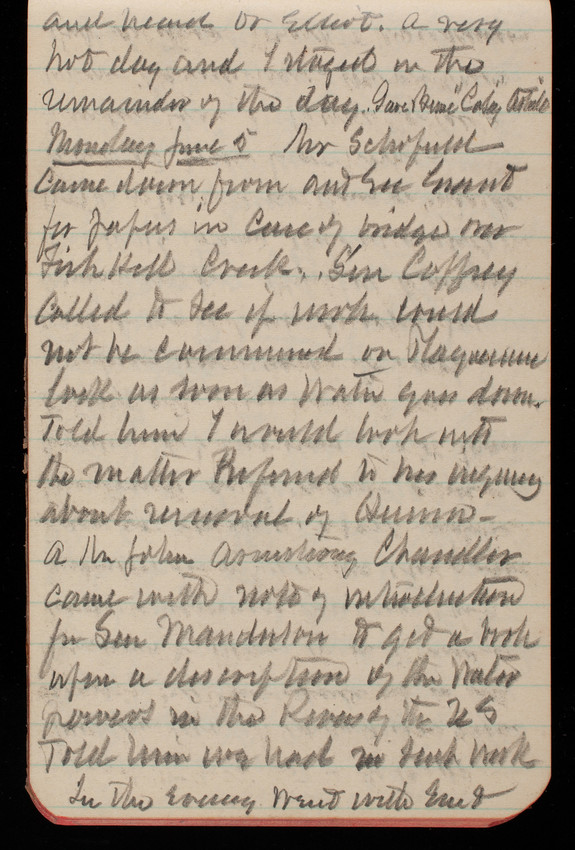 and heard Dr Elliot. A very
hot day and I stayed in the
remainder of the day. Gave Gene "Coley
Monday June 5 Mr Schofield
came down from and Gen Grant
for papers in case of bridge over
Fish Kill Creek. Gen Caffrey
called to see if work could
not be commenced on Plaquemine
lock as soon as water goes down.
Told him I would look into
the matter Referred to his inquiry
about removal of
A Mr John Armstrong Chandler
came with note of introduction
fr Gen Manderson to get a book
upon a description of the Water
powers in the Rivers of the US
Told him we had no such book
In the evening went with